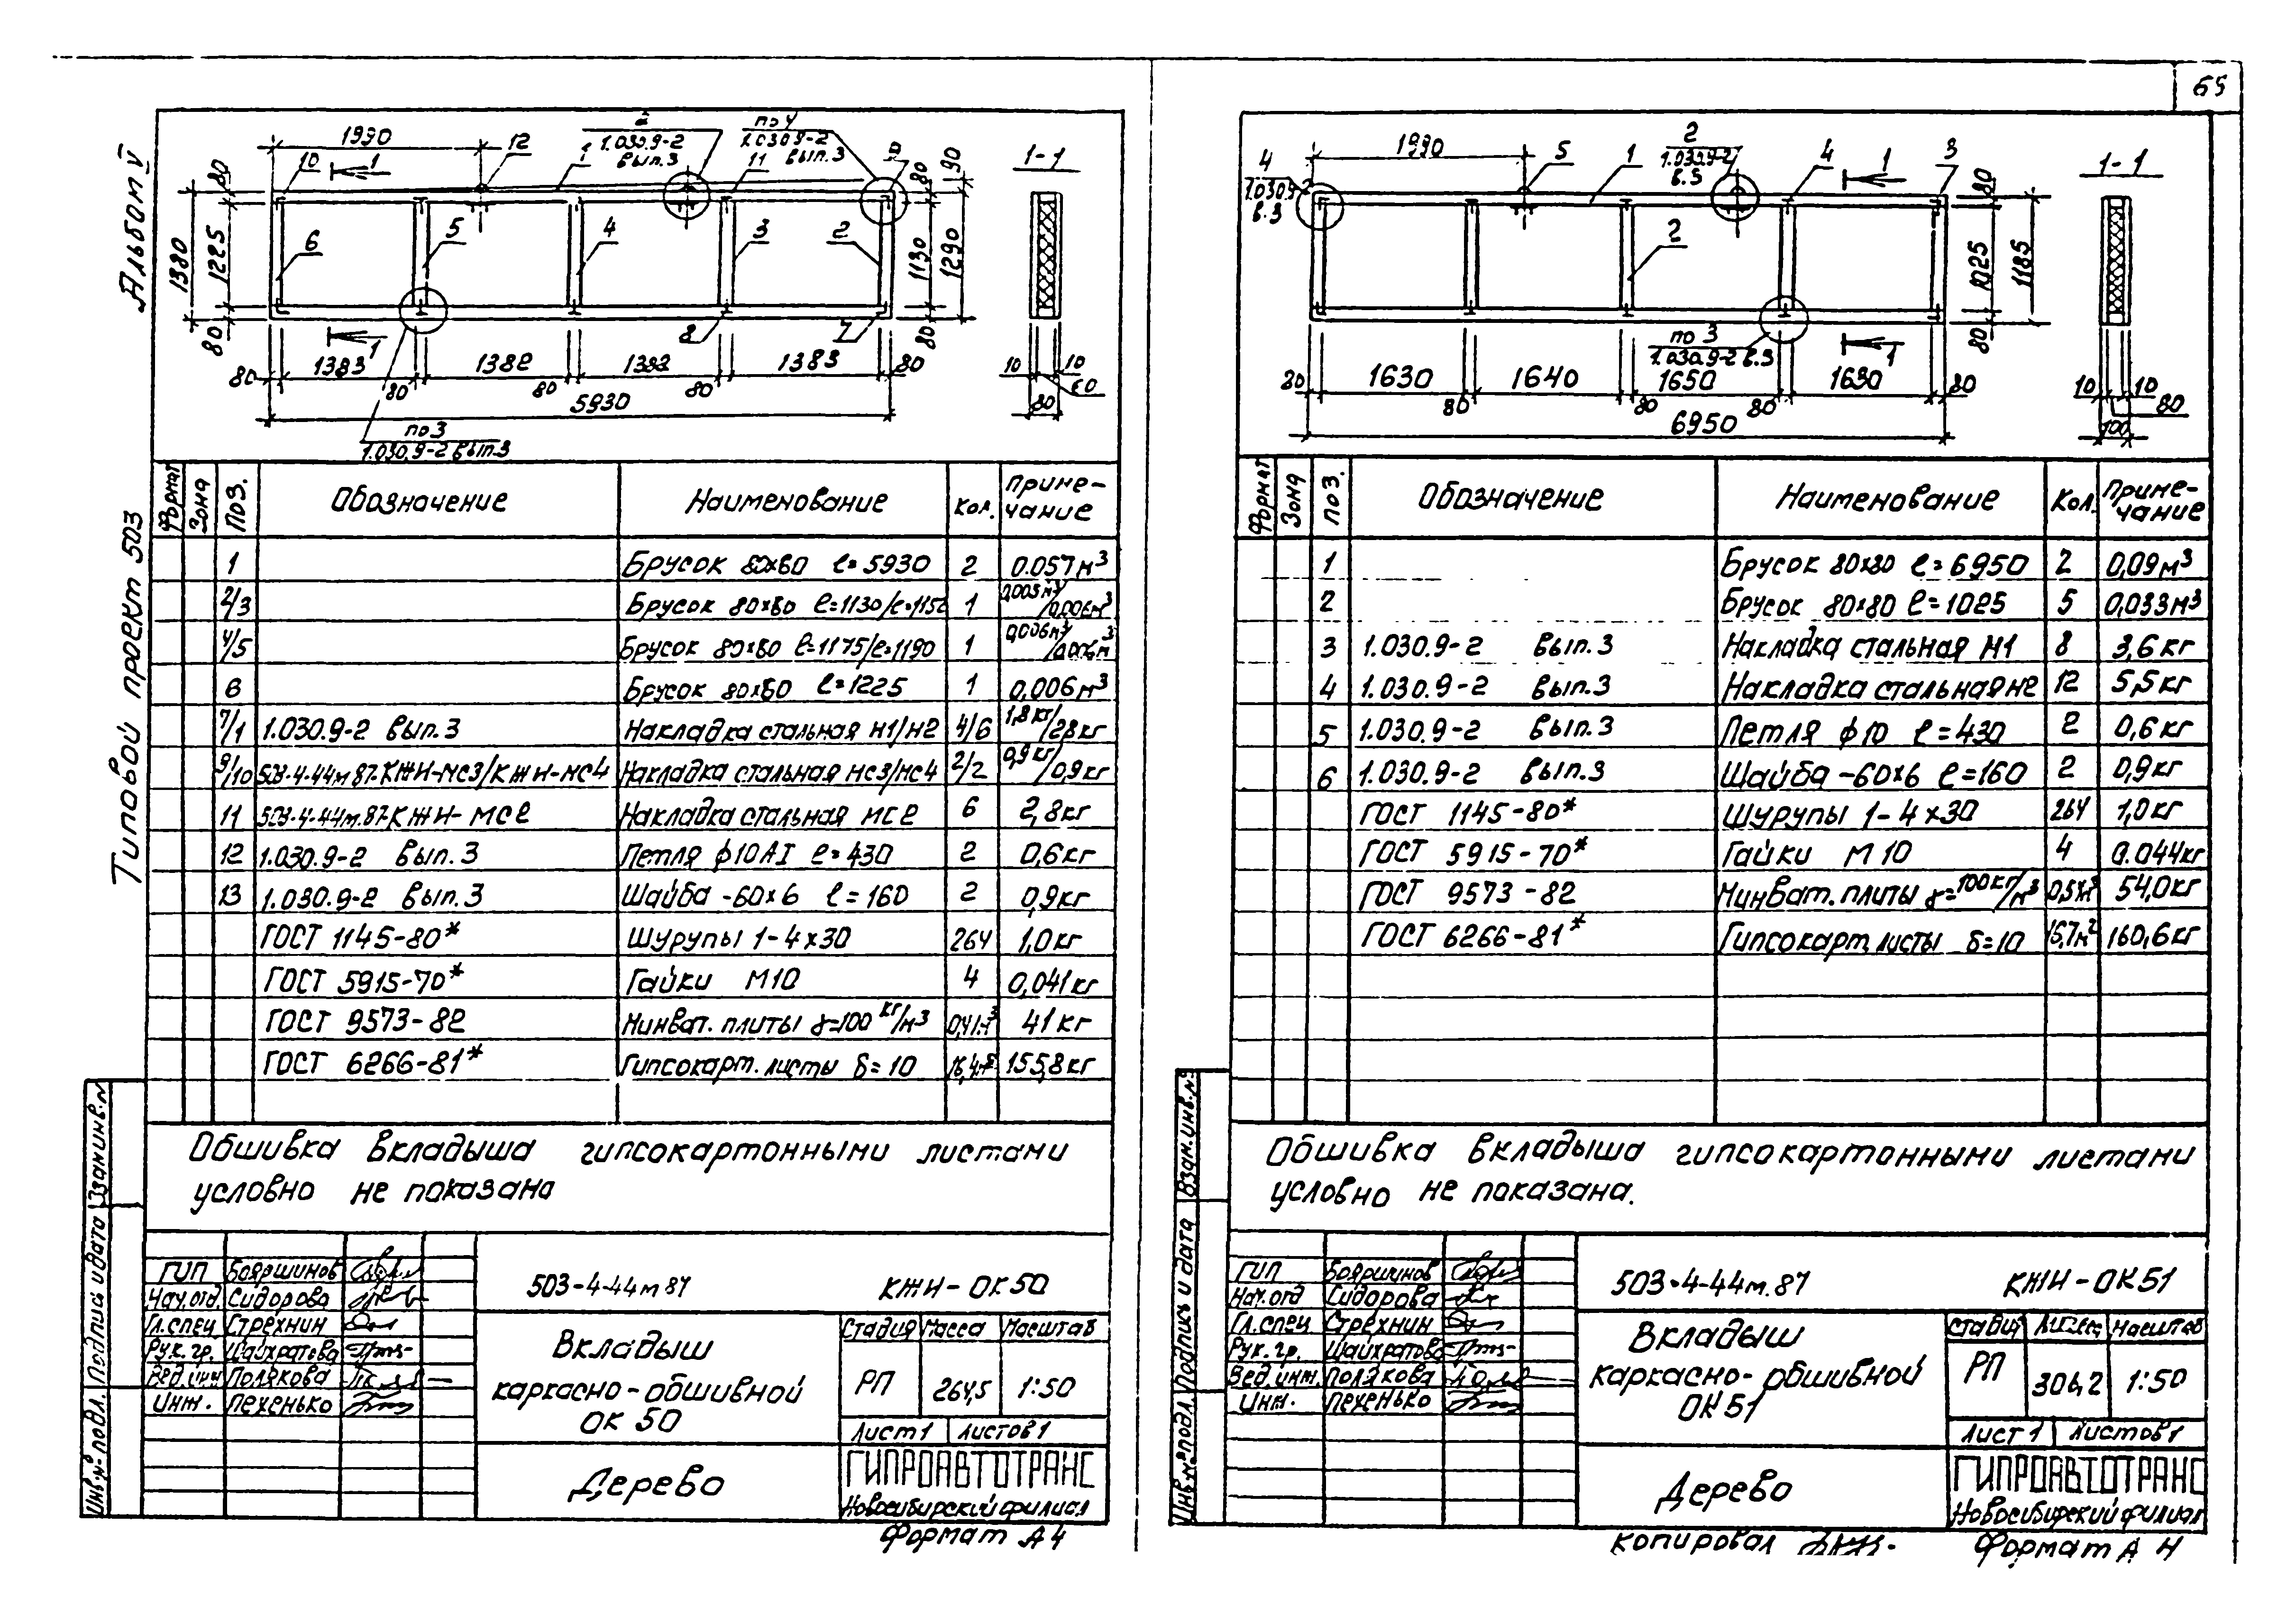 65
Альбом V
Типовой проект 503
1990
12
2
1.030.9-2
вып.3
по 4
1.030.9-2
вып.3
10
1
1
11
9
80
90
80
1-1
1380
1225
6
5
4
3
2
1130
1290
80
1
8
7
80
80
1383
80
1382
80
1382
80
1383
80
5930
10
10
60
80
по 3
1.030.9-2 вып.3
Формат
Зона
Поз.
Обозначение
Наименование
Кол.
Приме-
чание
1 Брусок 80х60 ℓ=5930 2 0.057м³
2/3 Брусок 80х60 ℓ=1130/ℓ=1150 1 0,005м³/0,006м³
4/5 Брусок 80х60 ℓ=1175/ℓ=1190 1 0,006м³/0,006м³
6 Брусок 80х60 ℓ=1225 1 0,006м³
7/1 1.030.9-2 вып.3 Накладка стальная Н1/Н2 4/6 1,8кг/2,8кг
9/10 503-4-44м 87-КЖИ-МС3/КЖИ-МС4 Накладка стальная МС3/МС4 2/2 0,9кг/0,9кг
11 503-4-44м.87-КЖИ-МС2 Накладка стальная МС2 6 2,8кг
12 1.030.9-2 вып.3 Петля ф10АI ℓ=430 2 0,6кг
13 1.030.9-2 вып.3 Шайба -60х6 ℓ=160 2 0,9кг
ГОСТ 1145-80* Шурупы 1-4х30 264 1,0кг
ГОСТ 5915-70* Гайки М10 4 0,041кг
ГОСТ 9573-82 Минват. плиты γ=100 кг/м³ 0,41м³ 41кг
ГОСТ 6266-81* Гипсокарт. листы δ=10 16,4м² 155,8кг
Обшивка вкладыша гипсокартонными листами
условно не показана
Взам.инв.№
Подпись и дата
Инв.№ подл.
ГИП Бояршинов
Нач.отд. Сидорова
Гл.спец Стрехнин
Рук.гр. Шайхратова
Вед.инж Полякова
Инж. Пехенько
503-4-44м 87 КЖИ-ОК50
Вкладыш
каркасно-обшивной
ОК 50
Стадия Масса Масштаб
РП 264,5 1:50
Лист 1 Листов 1
Дерево
ГИПРОАВТОТРАНС
Новосибирский филиал
Формат А4
4
1.030.9-2
в.3
1990
5
1
2
1.030.9-2
в.3
4
1
3
80
1-1
2
1025
1185
80
по 3
1.030.9-2 в.3
1
80
1630
80
1640
80
1650
80
1630
80
6950
10
10
80
100
Формат
Зона
Поз.
Обозначение
Наименование
Кол.
Приме-
чание
1 Брусок 80х80 ℓ=6950 2 0,09м³
2 Брусок 80х80 ℓ=1025 5 0,033м³
3 1.030.9-2 вып.3 Накладка стальная Н1 8 3,6кг
4 1.030.9-2 вып.3 Накладка стальная Н2 12 5,5кг
5 1.030.9-2 вып.3 Петля ф10 ℓ=430 2 0,6кг
6 1.030.9-2 вып.3 Шайба -60х6 ℓ=160 2 0,9кг
ГОСТ 1145-80* Шурупы 1-4х30 264 1,0кг
ГОСТ 5915-70* Гайки М10 4 0.044кг
ГОСТ 9573-82 Минват. плиты γ=100кг/м³ 54,0кг
ГОСТ 6266-81* Гипсокарт. листы δ=10 160,6кг
Обшивка вкладыша гипсокартонными листами
условно не показана.
Взам.инв.№
Подпись и дата
Инв.№ подл.
ГИП Бояршинов
Нач.отд Сидорова
Гл.спец Стрехнин
Рук.гр. Шайхратова
Вед.инж. Полякова
Инж. Пехенько
503-4-44м.87 КЖИ-ОК51
Вкладыш
каркасно-обшивной
ОК51
Стадия Масса Масштаб
РП 304,2 1:50
Лист 1 Листов 1
Дерево
ГИПРОАВТОТРАНС
Новосибирский филиал
Копировал
Формат А 4